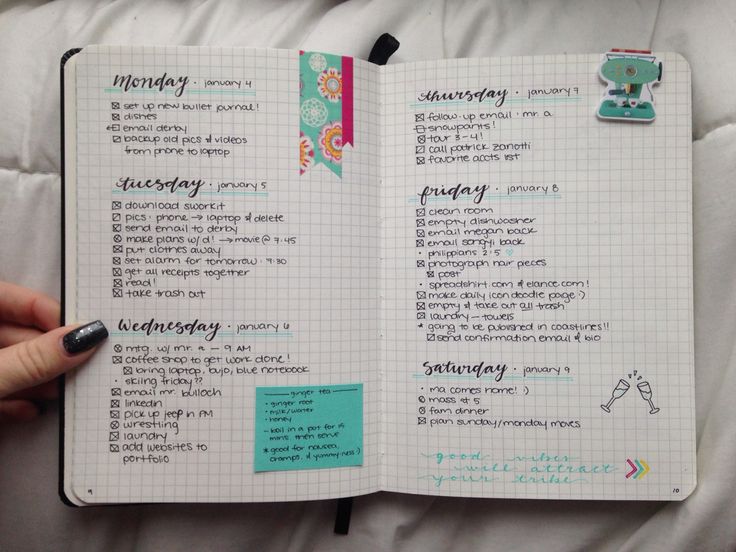 monday · january 4
set up new bullet journal!
dishes
email derby
backup old pics & videos
from phone to laptop
tuesday · january 5
download sworkit
pics · phone → laptop & delete
send email to derby
make plans w/ d! → movie @ 7:45
put clothes away
set alarm for tomorrow · 7:30
get all receipts together
read!
take trash out
wednesday · january 6
mtg. w/ mr. a — 9 AM
coffee shop to get work done!
bring laptop, bujo, blue notebook
· skiing friday??
email mr. bulloch
linkedin
pick up jeep in PM
wrestling
laundry
add websites to
portfolio
ginger tea
· ginger root
· milk/water
· honey
— boil in a pot for 15
mins. then serve
* good for nausea,
cramps, & yummyness :)
9
thursday · january 7
follow-up email · mr. a
snowpants!
tour 3-4!
call patrick zanotti
favorite accts list
friday · january 8
clean room
empty dishwasher
email megan back
email songyi back
· philippians 2:5 ♡
photograph hair pieces
post
· spreadshirt.com & elance.com!
make daily icon doodle page :)
empty & take out all trash
laundry — towels
* going to be published in coastlines!!
send confirmation email & bio
saturday · january 9
· ma comes home! :)
mass @ 5
fam dinner
plan sunday/monday moves
good vibes
will attract
your tribe
10